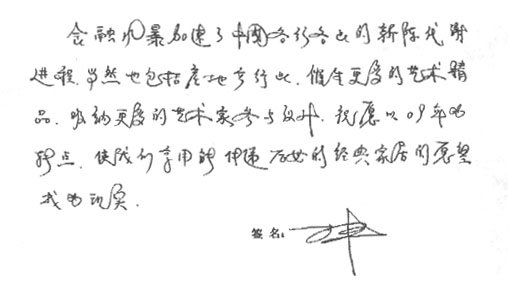 金融风暴加速了中国各行各业的新陈代谢
进程,当然也包括产地步行业,催生更多的艺术精
品,吸纳更多的艺术家参与设计,祝愿以09年为
转点,使我们享用能传递历史的经典家居的愿望
成为现实.
签名: